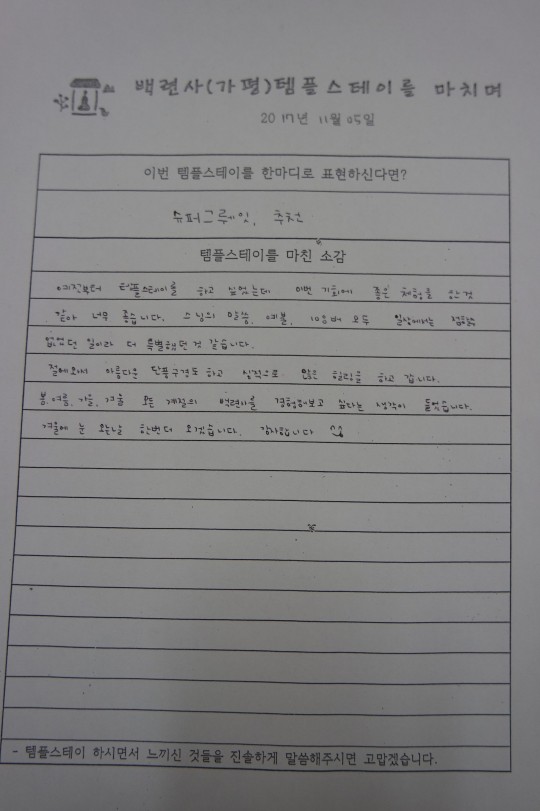 백련사(가평)템플스테이를 마치며
2017년 11월 05일
이번 템플스테이를 한마디로 표현하신다면?
슈퍼그뤠잇, 추천
템플스테이를 마친 소감
예전부터 템플스테이를 하고 싶었는데 이번 기회에 좋은 체험을 한것
같아 너무 좋습니다. 스님의 말씀, 예불, 108배 모두 일상에서는 접할수
없었던 일이라 더 특별했던 것 같습니다.
절에와서 아름다운 단풍구경도 하고 심적으로 많은 힐링을 하고 갑니다.
봄,여름,가을,겨울 모든 계절의 백련사를 경험해보고 싶다는 생각이 들었습니다.
겨울에 눈 오는날 한번더 오겠습니다. 감사합니다
- 템플스테이 하시면서 느끼신 것들을 진솔하게 말씀해주시면 고맙겠습니다.